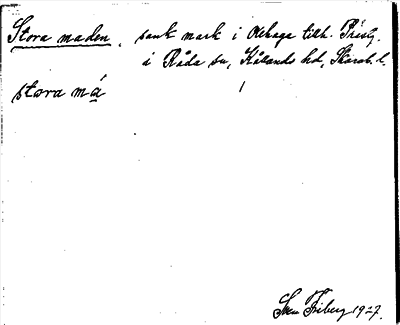 Stora maden, sank mark i tillh. Prästg.
i Råda sn, Kållands hd, Skarab. l.
stora må
Sven Friberg 1927.